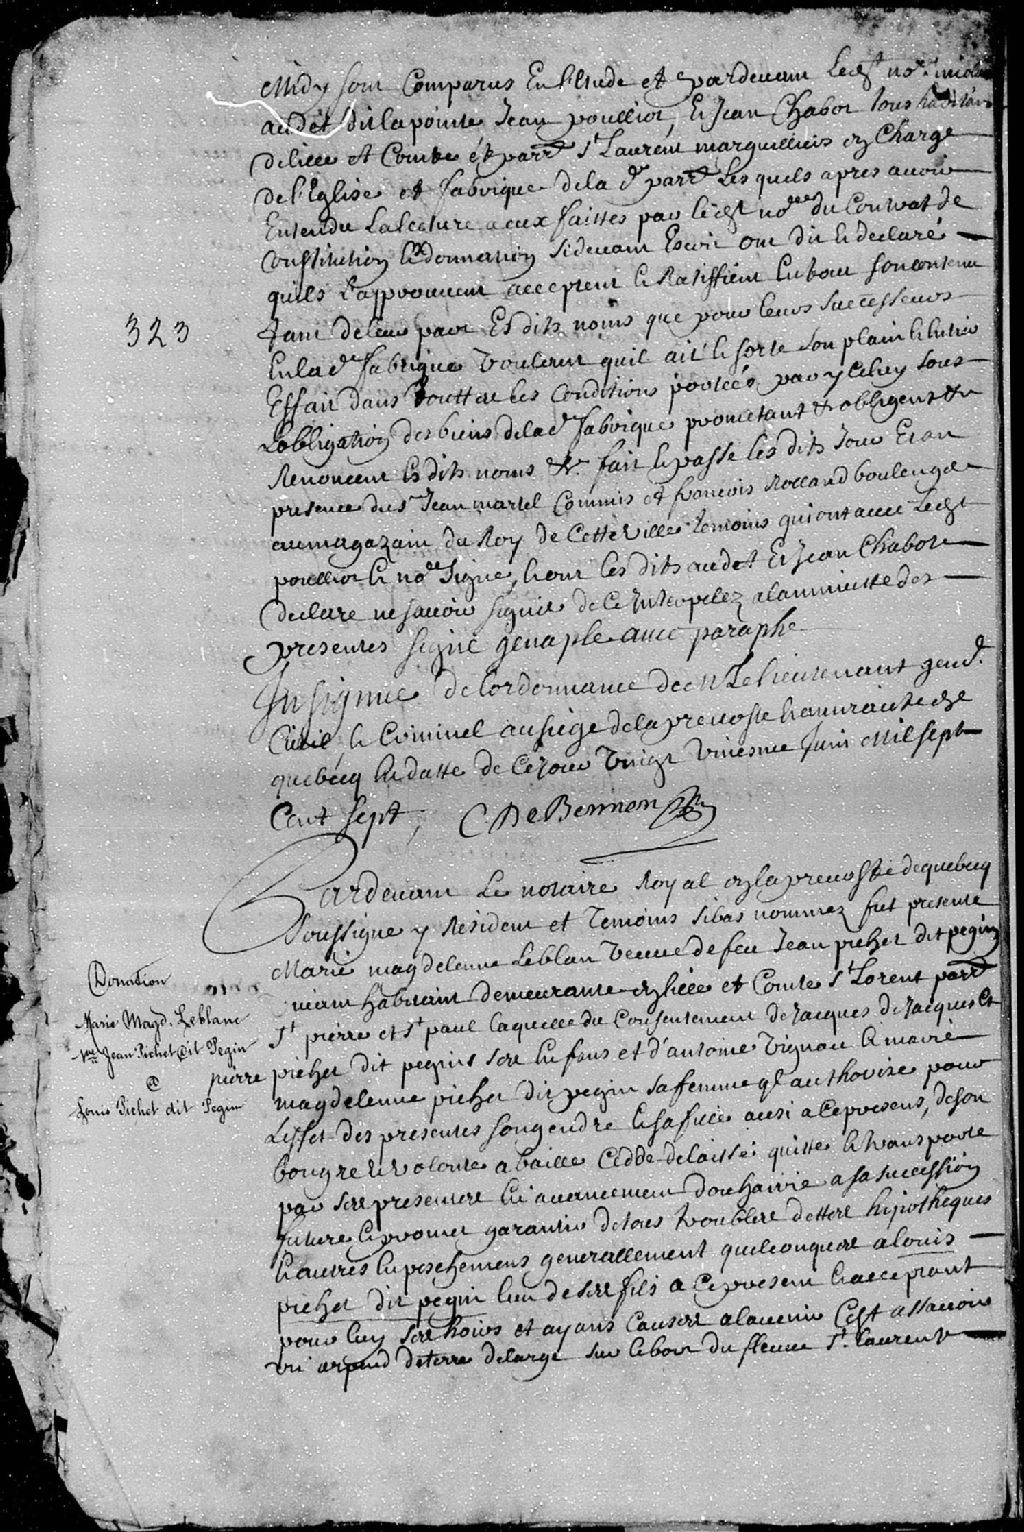 Midy sont Comparus En l'Etude et pardevant Ledt nore nicolas
audet dit lapointe Jean poulliot, Et Jean Chabot tous habitans
delisle et Comté & parre St Laurent marguilliers en Charge
de l'Eglise et fabrique dela de parre Lesquels apres avoir
Entendu La lecture a eux faittes par ledt nore du Contrat de
Constitution Et donnation sidevant Escrit ont dit Et declaré
quils L'approuvent acceptent Et Ratiffient En tout son contenu
323
tant deleur part Es dits noms que pour leurs successeurs
En lad fabrique veulent quil ait Et sorte son plain Et Entier
Effait dans touttes les Conditions portées par ycelluy sous
Lobbligation des biens delad fabrique promettant & obligent &
Renoncent Es dits noms &. fait Et passé les dits Jour Et an
presence du Sr Jean martel Commis et francois Rolland boulenger
au magazain du Roy de Cette ville temoins qui ont avec Ledt
poulliot Et nore signé, Et ont les dits audet Et Jean Chabot
declaré ne savoir signer de ce Interpelez a la minutte des
presentes signé genaple avec paraphe
Insignué de lordonnance de Mr Le lieutenant genl.
Civil, Et Criminel au siege dela prevosté Et amirauté de
quebecq En datte de Ce jour vingt uniesme Juin Mil sept
Cent sept, C De Bermon
Pardevant Le notaire Royal en la prevosté de quebecq
soussigné y Resident et temoins sibas nommez fut presente
Marie magdelenne Leblan veuve de feu Jean pichet dit pegin
vivant habitant demeurante en lisle et Comté St Lorent parre
Donation
Marie Magd. Leblanc
vve Jean Pichet dit Pegin
@
Louis Pichet dit Pegin
St pierre et St paul laquelle du Consentement de Jacques de Jacques Et
pierre pichet dit pegin ses Enfans et d'antoine vignau Et marie
magdelenne pichet dit pegin sa femme ql authorize pour
Leffet des presentes son gendre Et sa fille aussi a ce presens, de son
bon gré Et volonté a baillé Ceddé delaissé quitté Et transporté
par ses presentes En avancement d'ouhairie a sa succession
future Et promet garantir de tous troubles dettes hipotheques
Et autres Enpeschemens generallement quelconques a louis
pichet dit pegin lun de ses fils a Ce present Et acceptant
pour luy ses hoirs et ayans Causes a lavenir C'est assavoir
un arpend de terre de large sur le bord du fleuve St Laurent